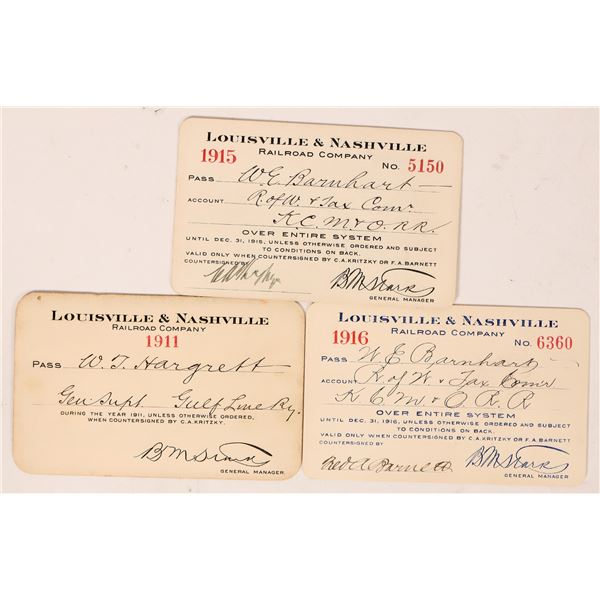 LOUISVILLE & NASHVILLE
RAILROAD COMPANY
1915 No. 5150
PASS W.E. Barnhart
ACCOUNT R. of W. & Tax Comr.
K.C.M. & O. R.R.
OVER ENTIRE SYSTEM
UNTIL DEC. 31, 1915, UNLESS OTHERWISE ORDERED AND SUBJECT
TO CONDITIONS ON BACK.
VALID ONLY WHEN COUNTERSIGNED BY C.A. KRITZKY OR F.A. BARNETT
COUNTERSIGNED BY
B M Starks
GENERAL MANAGER
LOUISVILLE & NASHVILLE
RAILROAD COMPANY
1911
PASS W. T. Hargrett
Gen Supt Gulf Line Ry.
DURING THE YEAR 1911, UNLESS OTHERWISE ORDERED,
WHEN COUNTERSIGNED BY C.A. KRITZKY.
B M Starks
GENERAL MANAGER
LOUISVILLE & NASHVILLE
RAILROAD COMPANY
1916 No. 6360
PASS W E Barnhart
ACCOUNT R of W & Tax Comr
K C M & O R R
OVER ENTIRE SYSTEM
UNTIL DEC. 31, 1916, UNLESS OTHERWISE ORDERED AND SUBJECT
TO CONDITIONS ON BACK.
VALID ONLY WHEN COUNTERSIGNED BY C.A. KRITZKY OR F.A. BARNETT
COUNTERSIGNED BY
Fred A Barnett B M Starks
GENERAL MANAGER